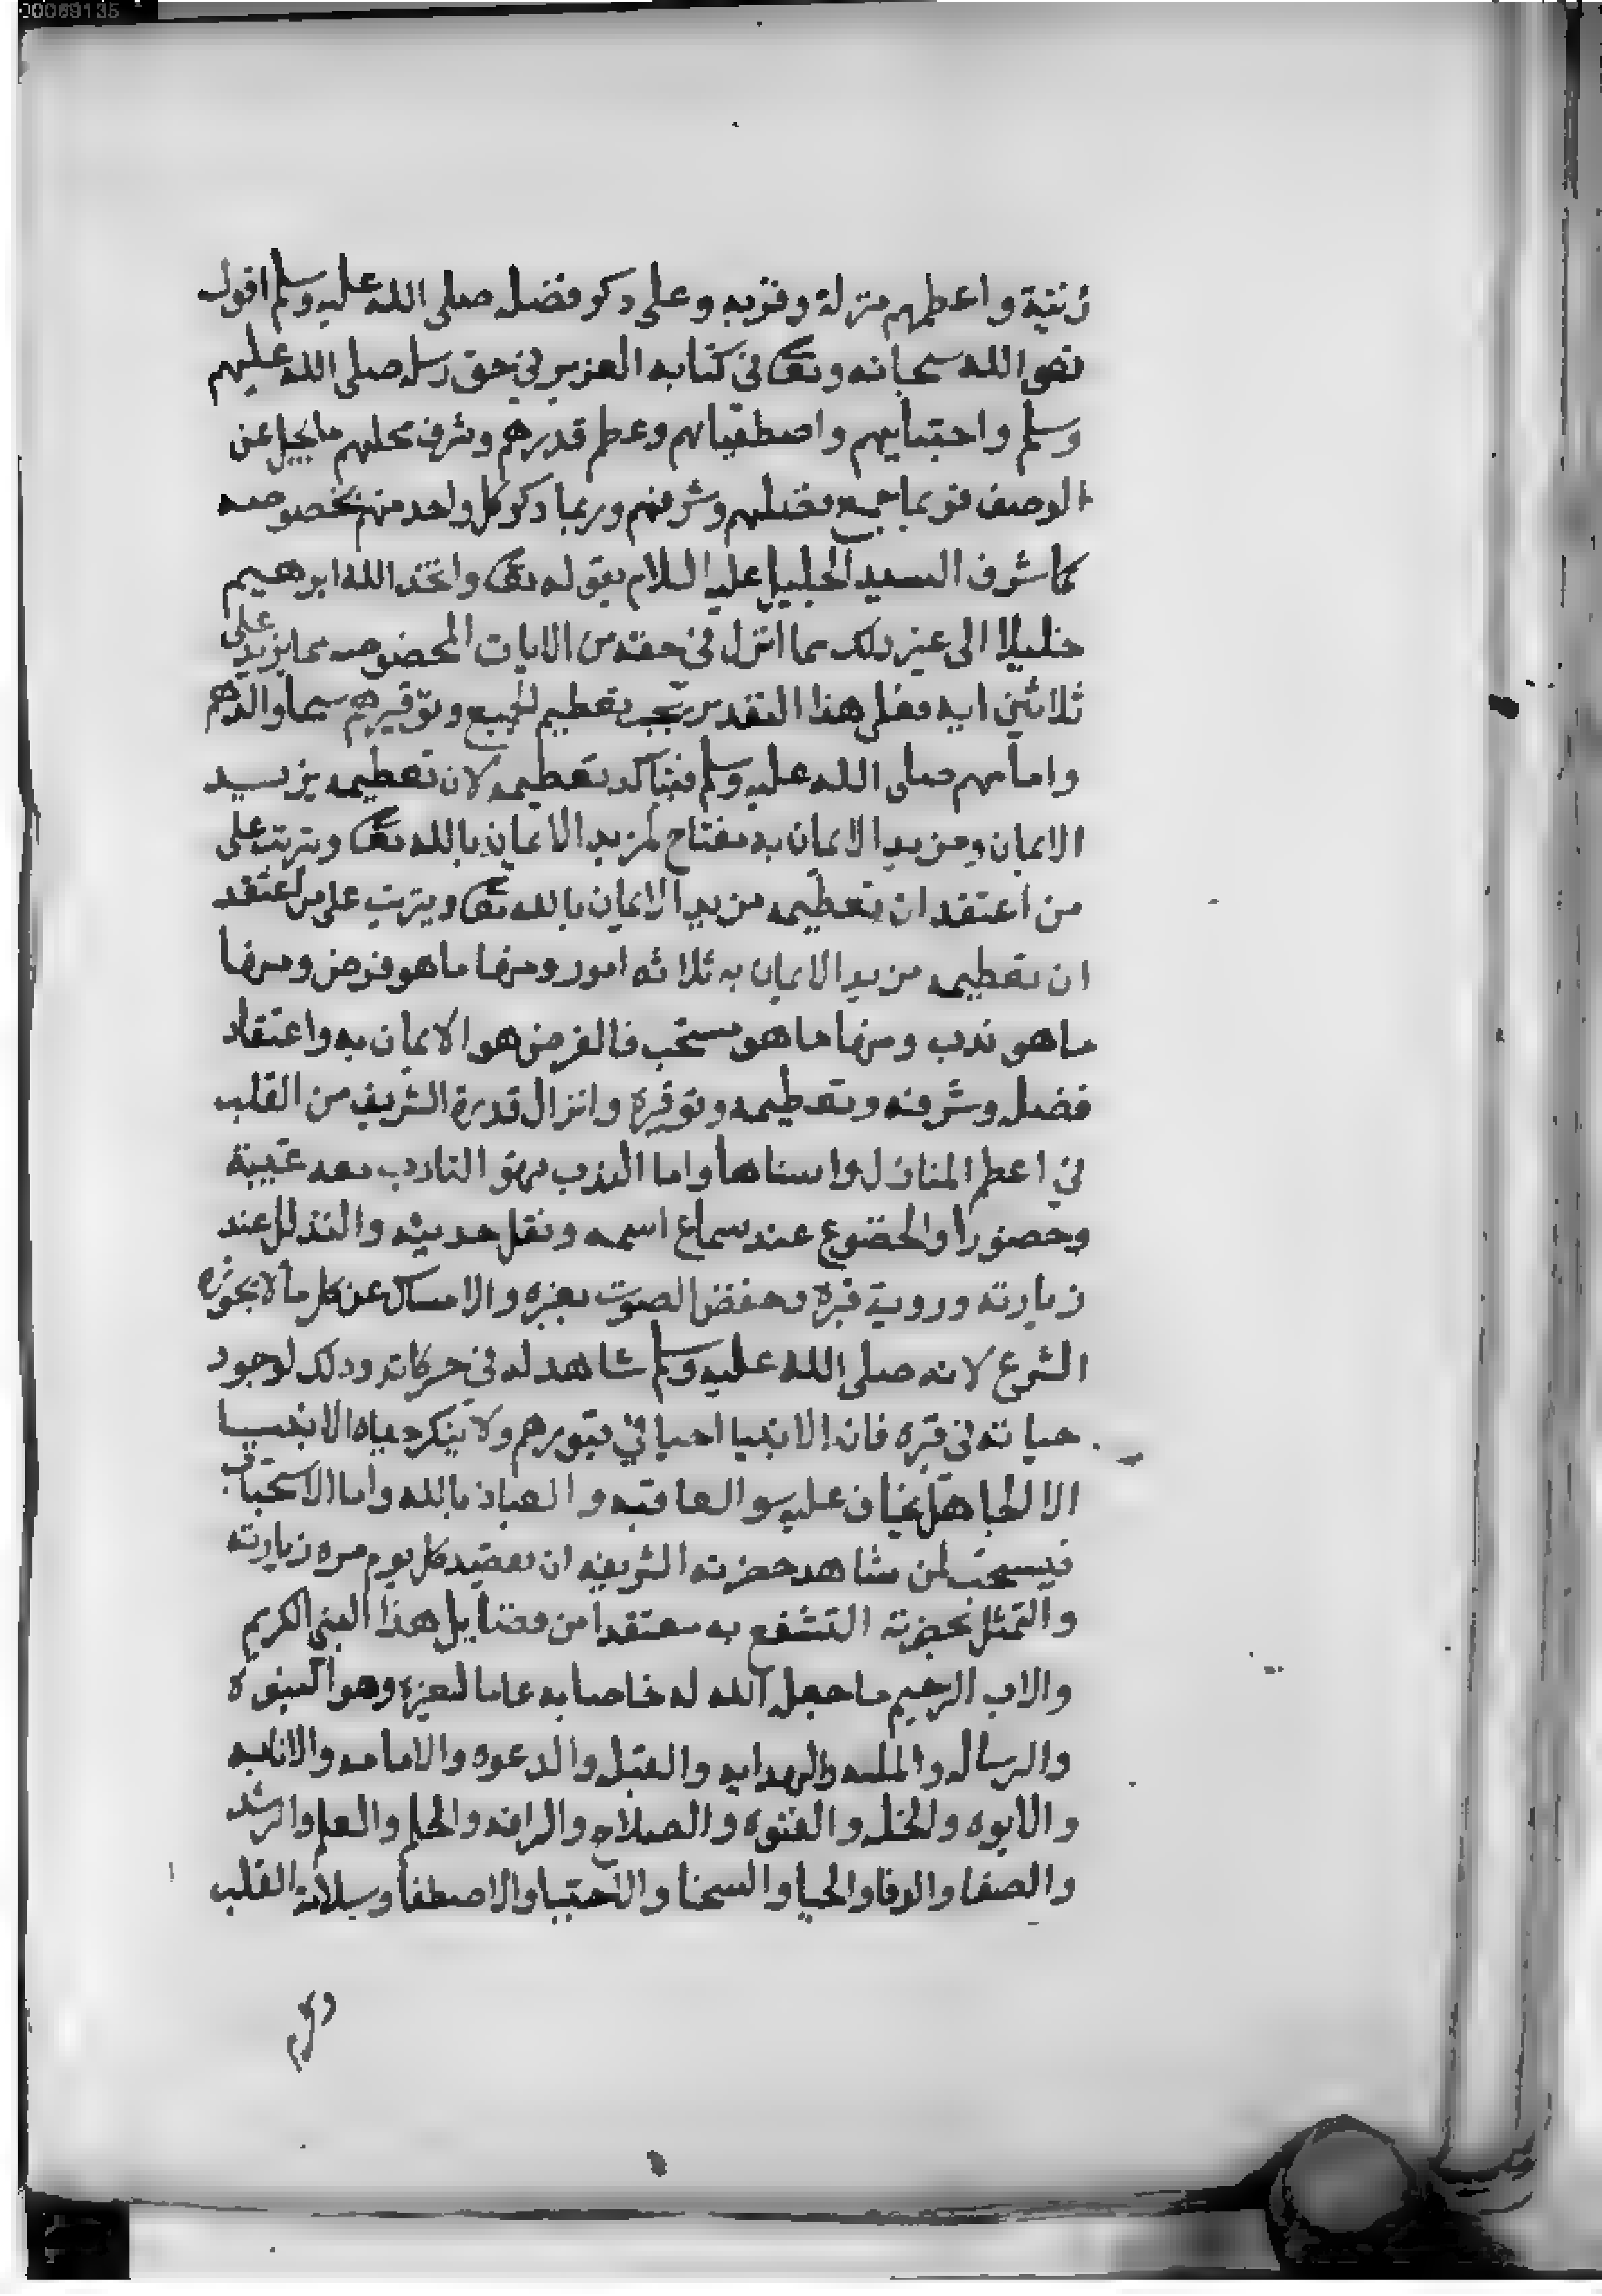 00069135
رتبة واعظمهم منزلة وقربه وعلى ذكر فضله صلى الله عليه وسلم اقول
نص الله سبحانه وتعالى في كتابه العزيز في حق رسله صلى الله عليهم
وسلم واجتبايهم واصطفيايهم وعظم قدرهم وشرف محلهم ما يجل عن
الوصف فربما جمع فضلهم وشرفهم وربما ذكر كل واحد منهم بخصوصه
كما شرف السيد الخليل عليه السلام بقوله تعالى واتخذ الله ابرهيم
خليلا الى غير ذلك مما انزل في حقه من الايات المخصوصه مما يزيد على
ثلاثين ايه فعلى هذا التقدير يجب تعظيم الجميع وتوقيرهم سيما والدهم
وامامهم صلى الله عليه وسلم فيتاكد تعظيمه لان تعظيمه يزيد
الايمان ومزيد الايمان به مفتاح لمزيد الايمان بالله تعالى ويترتب على
من اعتقد ان تعظيمه مزيد الايمان بالله تعالى ويترتب على من اعتقد
ان تعظيمه مزيد الايمان به ثلاثه امور ومنها ما هو فرض ومنها
ما هو ندب ومنها ما هو مستحب فالفرض هو الايمان به واعتقاد
فضله وشرفه وتعظيمه وتوقيره وانزال قدره الشريف من القلب
في اعظم المنازل واسناها واما الندب فهو التادب معه غيبة
وحضورا والخضوع عند سماع اسمه ونقل حديثه والتذلل عند
زيارته وروية قبره وخفض الصوت بغيره والامساك عن كل ما لا يجوزه
الشرع لانه صلى الله عليه وسلم شاهد له في حركاته وذلك لوجود
حياته في قبره فان الانبيا احيا في قبورهم ولا ينكر حياه الانبيا
الا الجاهل يخاف عليه سو العاقبه والعياذ بالله واما الاستحباب
فيستحب لمن شاهد حضرته الشريفه ان يقصد كل يوم مره زيارته
والتمثل بحضرته التشفع به معتقدا من فضايل هذا النبي الكريم
والاب الرحيم ما جعل الله له خاصا به عاما لغيره وهو النبوة
والرساله والمله والهدايه والقبله والدعوه والامامه والانابه
والابوه والخله والفتوه والصلاح والرافه والحلم والعلم والرشد
والصفا والوفا والحيا والسخا والاجتبا والاصطفا وسلامة القلب